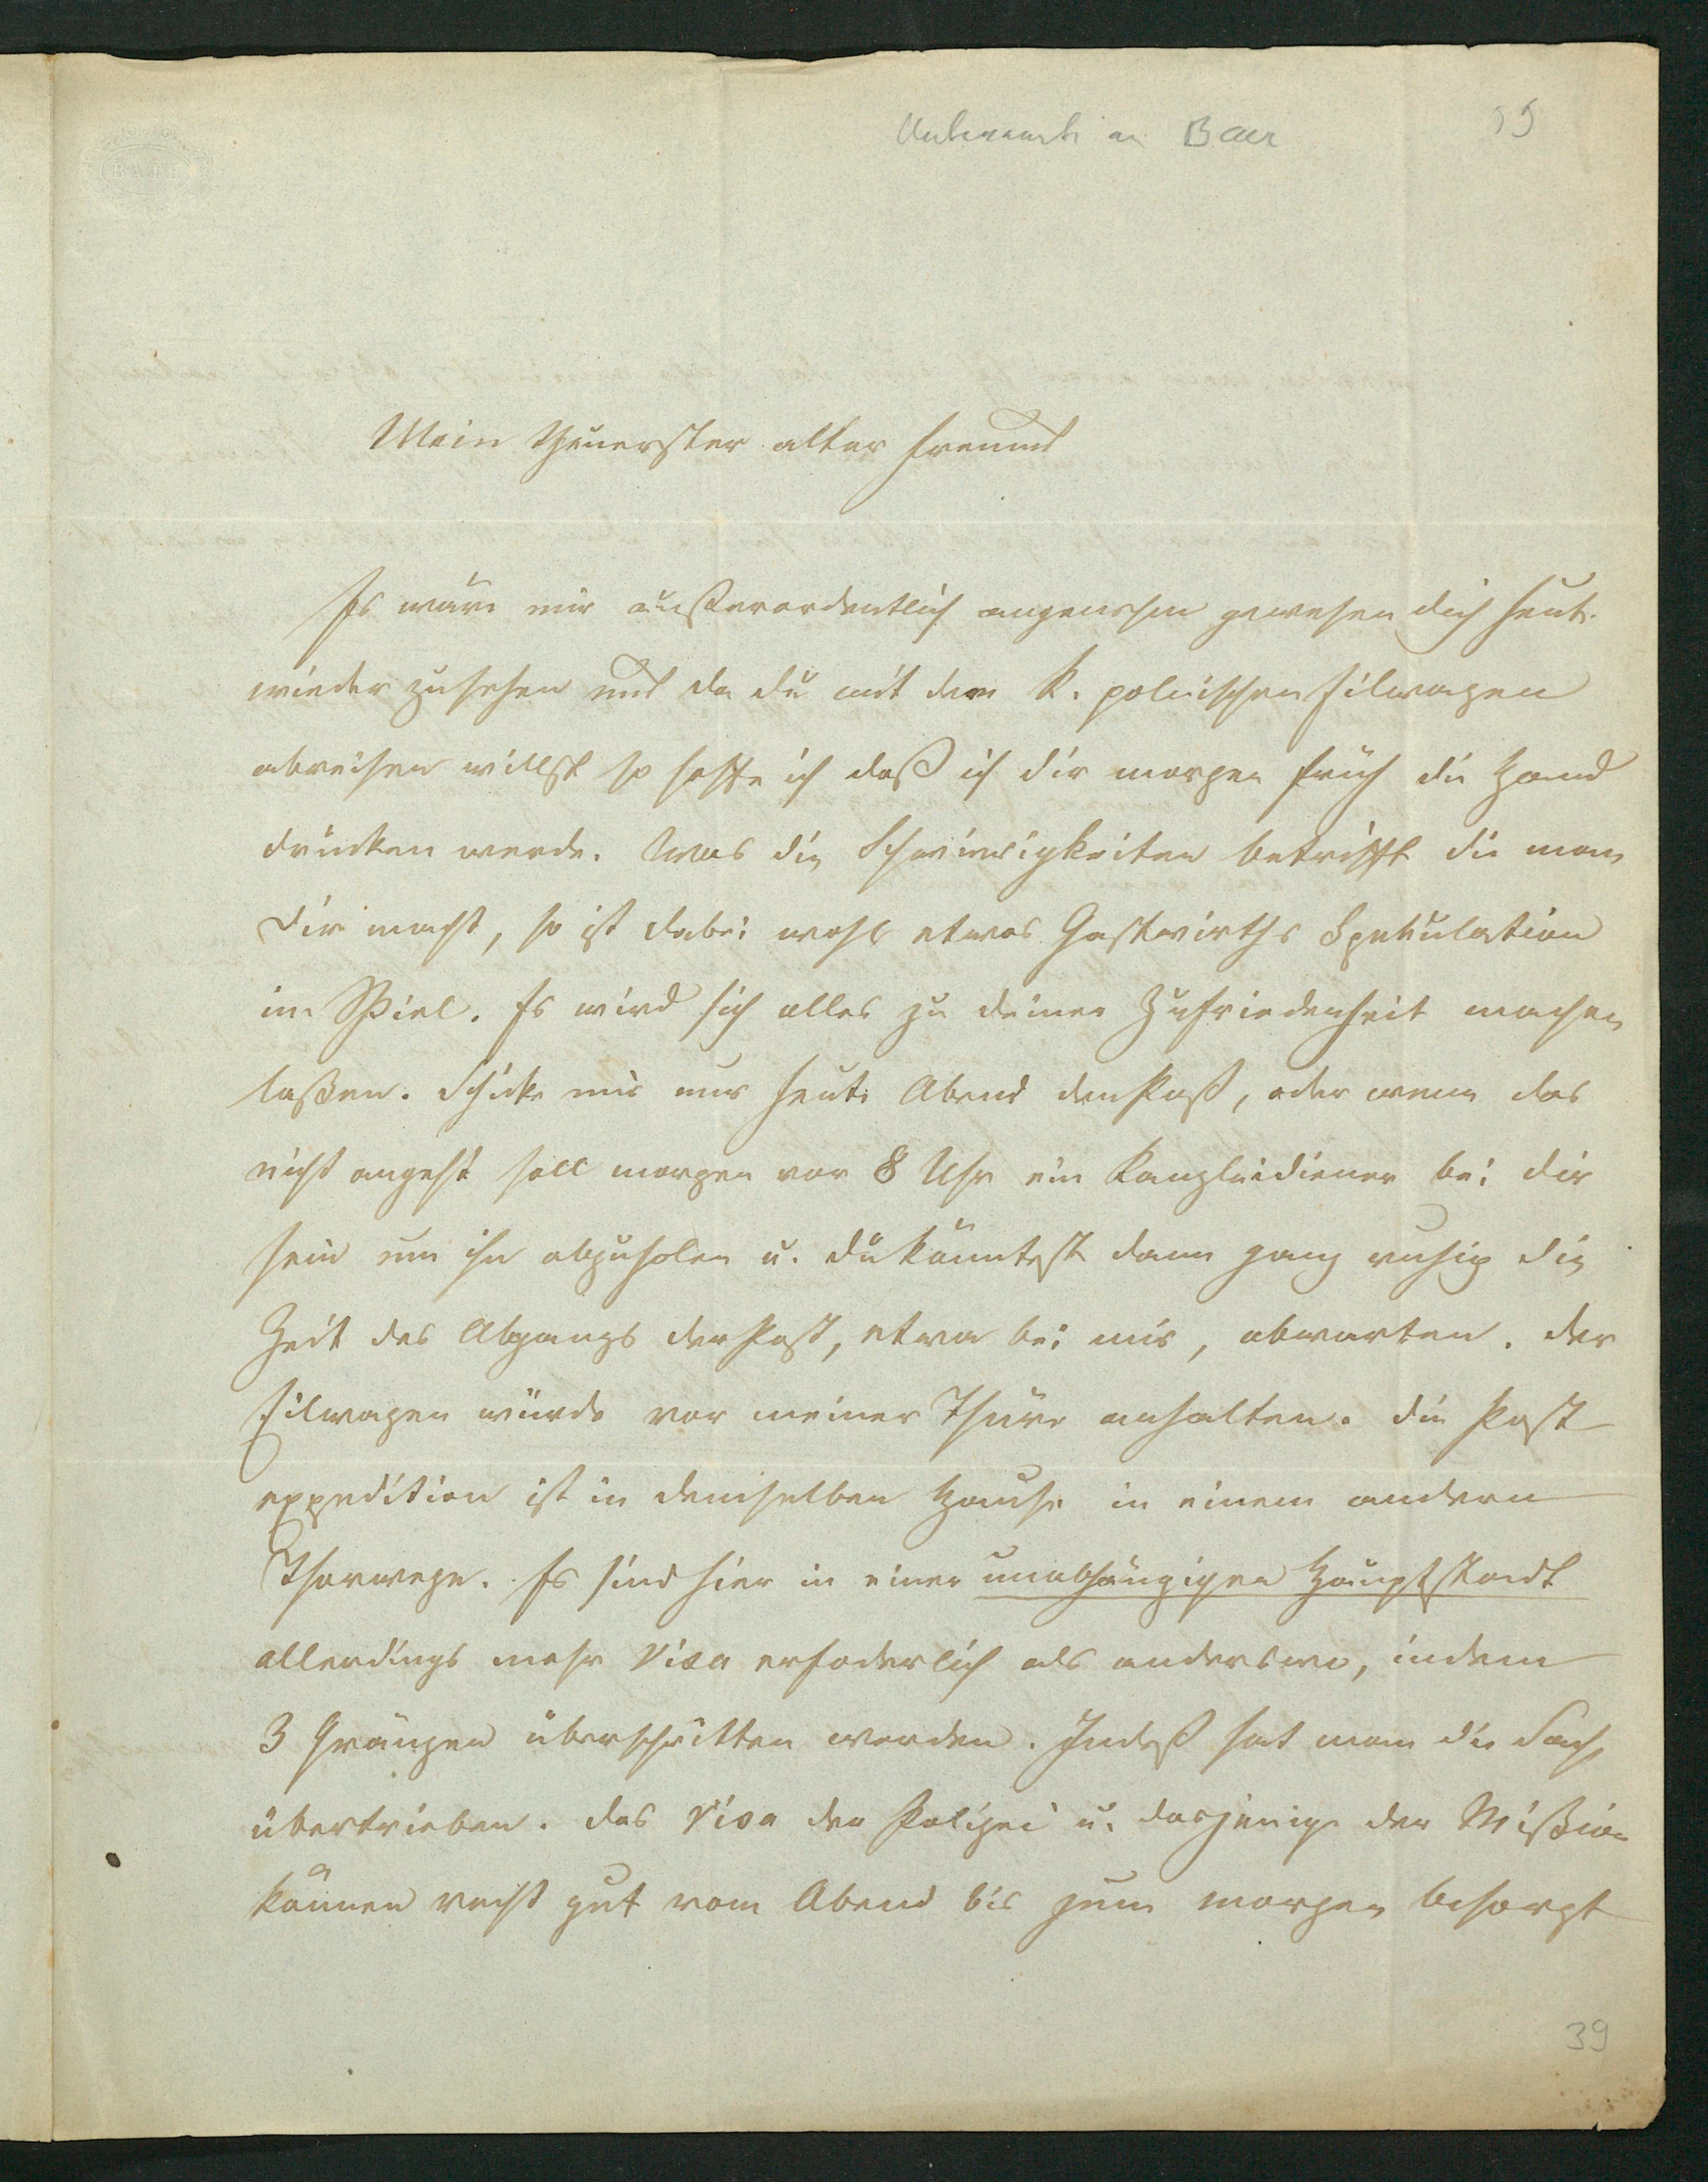 an Baer
BATH
Mein theuerster alter Freund
Es wäre mir außerordentlich angenehm gewesen dich heute
wieder zusehen und da du mit dem k. polnischen Eilwagen
abreisen willst so hoffe ich daß ich dir morgen früh die Hand
drücken werde. Was die Schwierigkeiten betrifft die man
dir macht, so ist dabei wohl etwas Gastwirths Spekulation
im Spiel. Es wird sich alles zu deiner Zufriedenheit machen
laßen. Schicke mir nur heute Abend den Paß, oder wenn das
nicht angeht soll morgen vor 8 Uhr ein Kanzleidiener bei dir
sein um ihn abzuholen u. du könntest dann ganz ruhig die
Zeit des Abgangs der Post, etwa bei mir, abwarten. Der
Eilwagen würde vor meiner Thüre anhalten. Die Post
expedition ist in demselben Hause in einem andern
Thorwege. Es sind hier in einer unabhängigen Hauptstadt
allerdings mehr Visa erfoderlich als anderswo, indem
3 Gränzen überschritten werden. Indeß hat man die Sache
übertrieben. Das Visa der Polizei u. dasjenige der Mißion
können recht gut vom Abend bis zum morgen besorgt
39